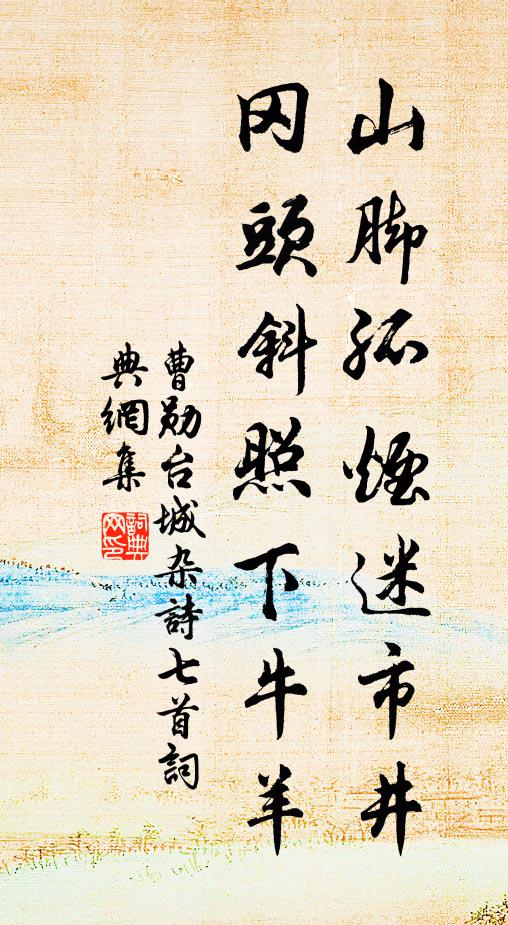 山脚孤煙迷市井
冈頭斜照下牛羊
曹勋台城杂詩七首詞
典網集
詞典
网印